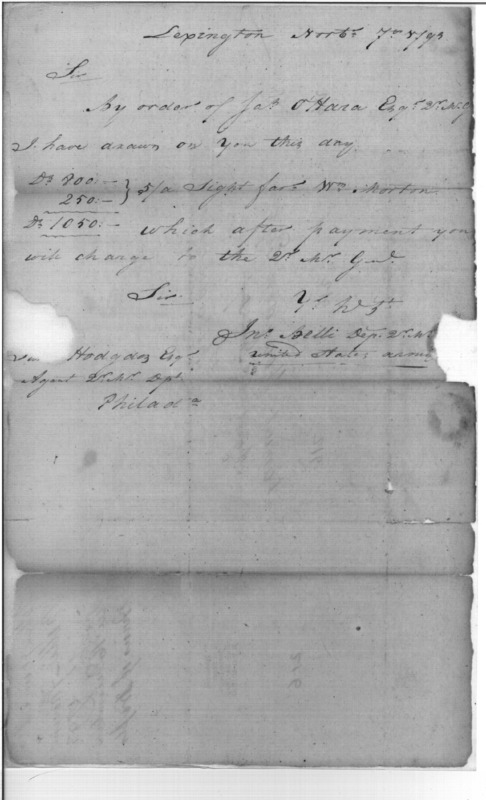 Lexington Novbr. 7th 1793
Sir
By order of Jas. O'Hara Esqr. Qr. Mr. G
I have drawn on you this day
Ds. 800:–
250:– } 5/d Sight favr. Wm. Morton
Ds. 1050:– which after payment you
will charge to the Qr. Mr. Gl.
Sir
Yr. H St.
Jno. Belli Dep. Qr. Mr.
united States army
Hodgdon Esqr.
Agent Qr. Mr. Dept.
Philada